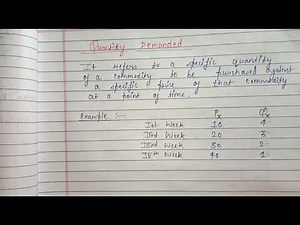 Quantity Demanded
It refers to a specific quantity
of a commodity to be purchased against
a specific price of that commodity
at a point of time.
Example :- Px Qx
Ist Week 10 4
IInd Week 20 3
IIIrd Week 30 2
IVth Week 40 1